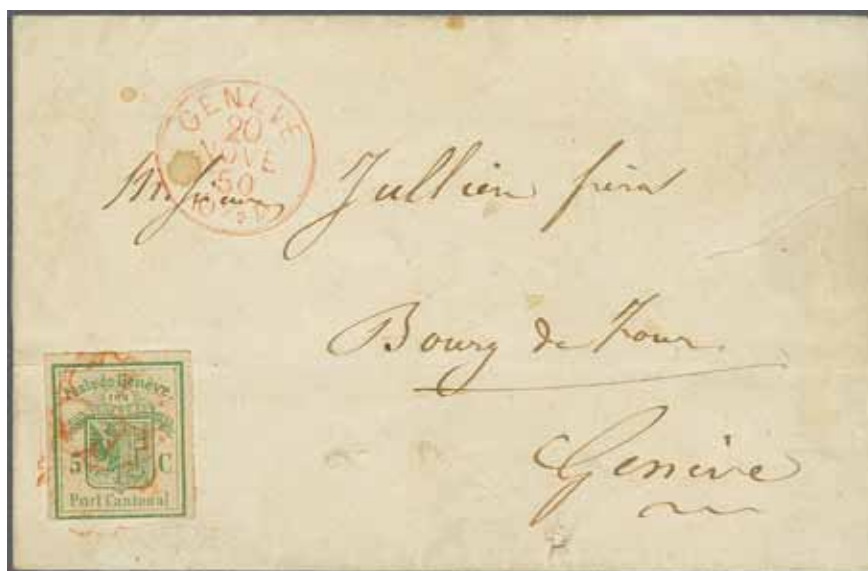 GENEVE
20
NOVE
50
Messieurs Jullien frères
Bourg de Four
Genève
Poste de Genève
5 C
Port Cantonal